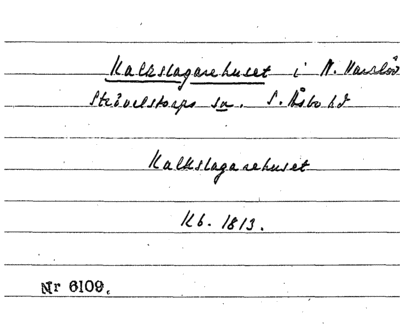 Kalkslagarehuset i N. Varalöv
Strövelstorps sn. S. Åsbo hd
Kalkslagarehuset
Kb. 1813.
Nr 6109.